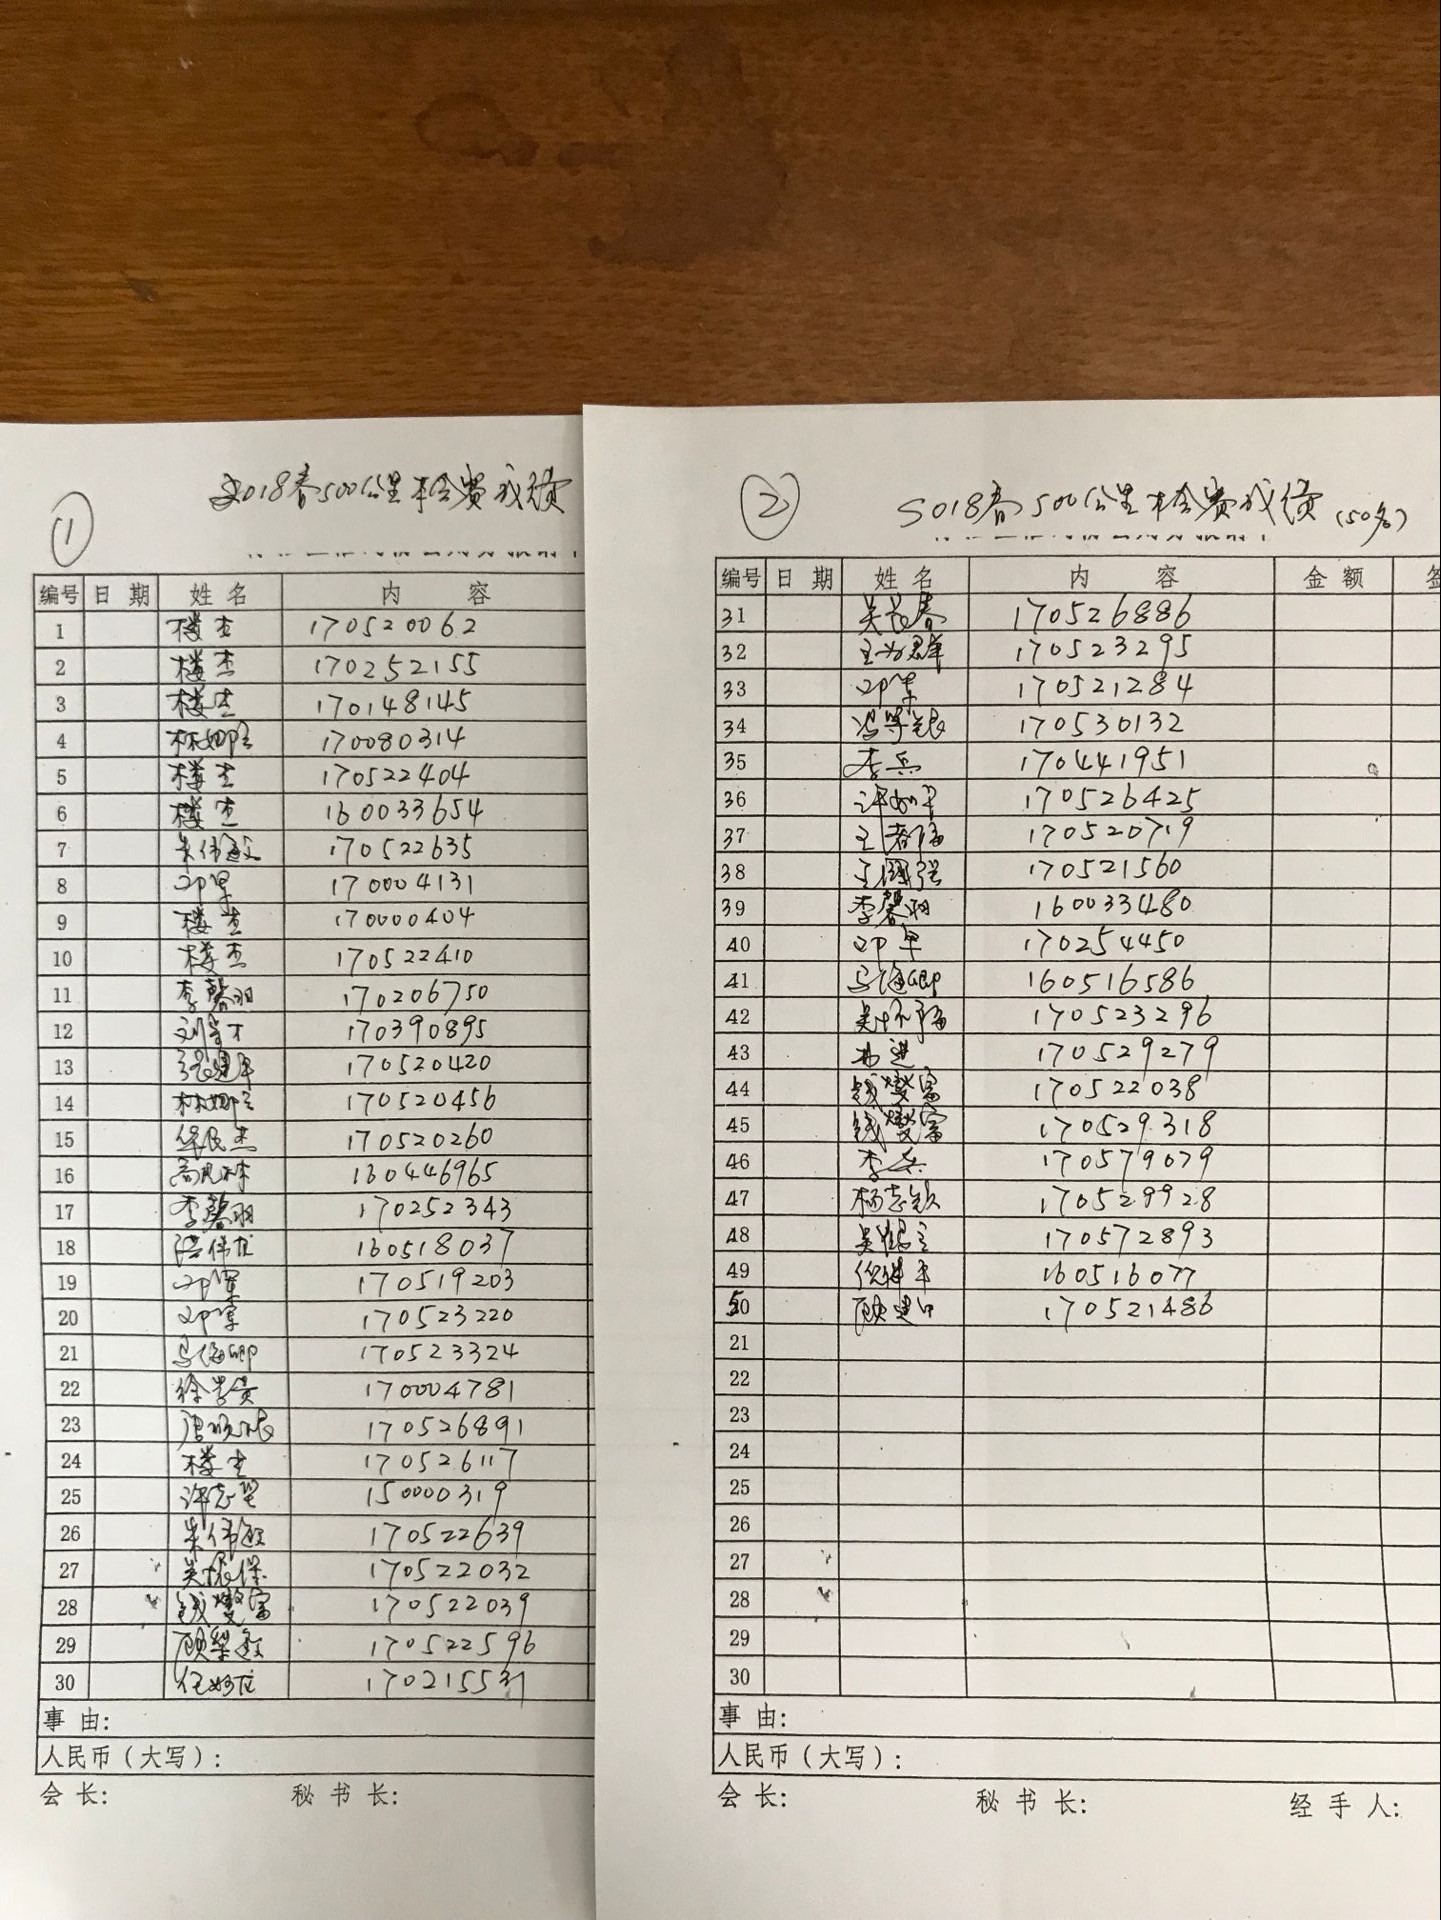 ①
2018春500公里检费成绩
编号 日 期 姓 名 内 容
1 楼杰 170520062
2 楼杰 170252155
3 楼杰 170148145
4 170080314
5 楼杰 170522404
6 楼杰 160033654
7 朱伟敏 170522635
8 邓军 170004131
9 楼杰 170000404
10 楼杰 170522410
11 李馨羽 170206750
12 170390895
13 张建平 170520420
14 170520456
15 华民杰 170520260
16 160446965
17 李馨羽 170252343
18 160518037
19 邓军 170519203
20 邓军 170523220
21 马海卿 170523324
22 170004781
23 170526891
24 楼杰 170526117
25 150000319
26 朱伟敏 170522639
27 吴根保 170522032
28 钱燮富 170522039
29 170522596
30 170215531
事 由:
人民币（大写）:
会 长: 秘 书 长:
②
2018春500公里检费成绩（50名）
编号 日 期 姓 名 内 容 金 额 签
31 吴长春 170526886
32 王为群 170523295
33 邓军 170521284
34 170530132
35 李兵 170441951
36 170526425
37 170520719
38 王国强 170521560
39 李馨羽 160033480
40 邓军 170254450
41 马海卿 160516586
42 170523296
43 170529279
44 钱燮富 170522038
45 钱燮富 170529318
46 李兵 170579079
47 杨志钦 170529928
48 170572893
49 倪祥平 160516077
50 顾建中 170521486
21
22
23
24
25
26
27
28
29
30
事 由:
人民币（大写）:
会 长: 秘 书 长: 经 手 人: